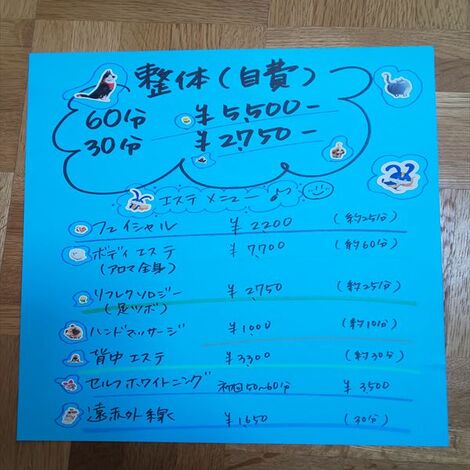 整体(自費)
60分 ¥5,500-
30分 ¥2,750-
エステメニュー♪
フェイシャル ¥2200 (約25分)
ボディエステ ¥7,700 (約60分)
(アロマ全身)
リフレクソロジー ¥2,750 (約25分)
(足ツボ)
ハンドマッサージ ¥1000 (約10分)
背中エステ ¥3,300 (約30分)
セルフホワイトニング 初回50~60分 ¥3,500
遠赤外線 ¥1,650 (30分)